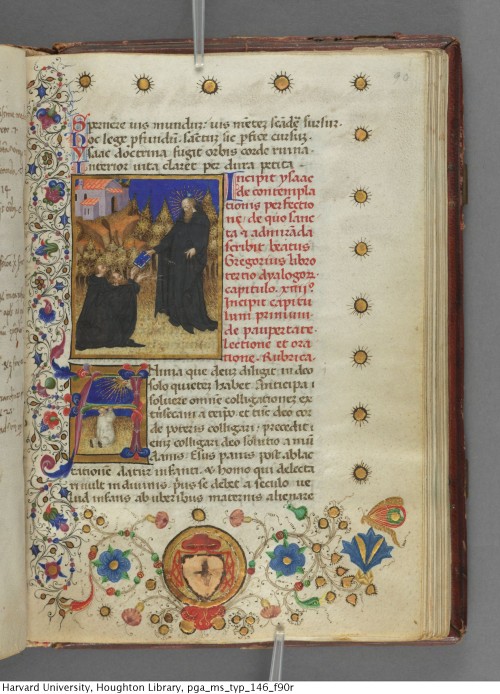 90
Spernere uis mundum: uis mēter scādē sursur.
Hoc lege
ysaac doctrina fugit orbis corde ruinā
Interior uita claret per dura petita
Incipit ysaac
de contempla
tionis perfectio
ne, de quo sanc
ta & admirāda
scribit beatus
Gregorius libro
tertio dyalogor.
capitulo. xiiii.º
Incipit capitu
lum primum
de paupertate
lectione et ora
tione. Rubrica.
Anima que deum diligit in deo
solo quietem habet. Anticipa i
soluere omnem colligationem ex
te
de poteris colligari; precedit i
colligari deo solutio a mū
danis. Esus panis post ablac
tationē datur infanti. & homo qui delecta
ri uult in diuinis. prius se debet a seculo ue
lud infans ab uberibus maternis alienare
Harvard University, Houghton Library, pga_ms_typ_146_f90r